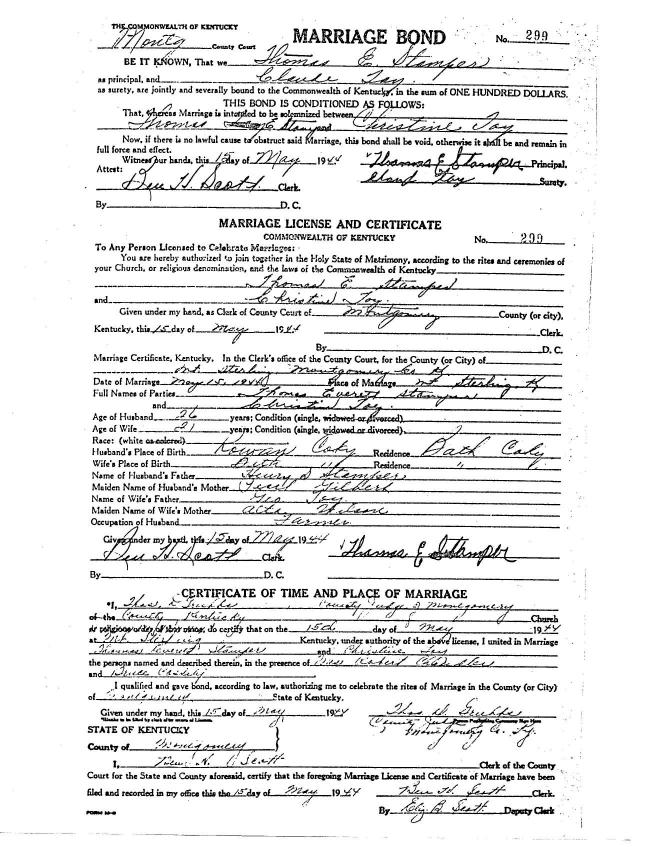 THE COMMONWEALTH OF KENTUCKY
MARRIAGE BOND No. 299
Montg County Court
BE IT KNOWN, That we Thomas E. Stamper
as principal, and Claude Toy
as surety, are jointly and severally bound to the Commonwealth of Kentucky, in the sum of ONE HUNDRED DOLLARS.
THIS BOND IS CONDITIONED AS FOLLOWS:
That, whereas Marriage is intended to be solemnized between
Thomas E Stamper Christine Toy
Now, if there is no lawful cause to obstruct said Marriage, this bond shall be void, otherwise it shall be and remain in
full force and effect.
Witness our hands, this 15 day of May 1944 Thomas E Stamper Principal.
Attest: Toy Surety.
Ben H. Scott Clerk.
By D. C.
MARRIAGE LICENSE AND CERTIFICATE
COMMONWEALTH OF KENTUCKY No. 299
To Any Person Licensed to Celebrate Marriages:
You are hereby authorized to join together in the Holy State of Matrimony, according to the rites and ceremonies of
your Church, or religious denomination, and the laws of the Commonwealth of Kentucky
Thomas E. Stamper
and Christine Toy
Given under my hand, as Clerk of County Court of Montgomery County (or city),
Kentucky, this 15 day of May 1944 Clerk.
By D. C.
Marriage Certificate, Kentucky. In the Clerk's office of the County Court, for the County (or City) of
Mt Sterling Montgomery Co Ky
Date of Marriage May 15, 1944 Place of Marriage Mt Sterling, Ky
Full Names of Parties Thomas Everett Stamper
and Christine Toy
Age of Husband 26 years; Condition (single, widowed or divorced)
Age of Wife 21 years; Condition (single, widowed or divorced)
Race: (white or colored)
Husband's Place of Birth Rowan Coky Residence Bath Coky
Wife's Place of Birth Bath " Residence "
Name of Husband's Father Henry Stamper
Maiden Name of Husband's Mother Gilbert
Name of Wife's Father Geo Toy
Maiden Name of Wife's Mother Alta Wilson
Occupation of Husband Farmer
Given under my hand, this 15 day of May 1944
Ben H. Scott Clerk. Thomas E Stamper
By D. C.
CERTIFICATE OF TIME AND PLACE OF MARRIAGE
*I, Thos. D. Grubbs County Judge of Montgomery
of the County Kentucky Church
or religious order of that name, do certify that on the 15th day of May 1944
at Mt Sterling Kentucky, under authority of the above license, I united in Marriage
Thomas Everett Stamper and Christine Toy
the persons named and described therein, in the presence of Robert
and Bruce Cassity
I qualified and gave bond, according to law, authorizing me to celebrate the rites of Marriage in the County (or City)
of Montgomery State of Kentucky.
Given under my hand, this 15 day of May 1944 Thos. D. Grubbs
County Judge
Montgomery Co. Ky.
STATE OF KENTUCKY
County of Montgomery
I, Ben H. Scott Clerk of the County
Court for the State and County aforesaid, certify that the foregoing Marriage License and Certificate of Marriage have been
filed and recorded in my office this the 15 day of May 1944 Ben H. Scott Clerk.
By Scott Deputy Clerk